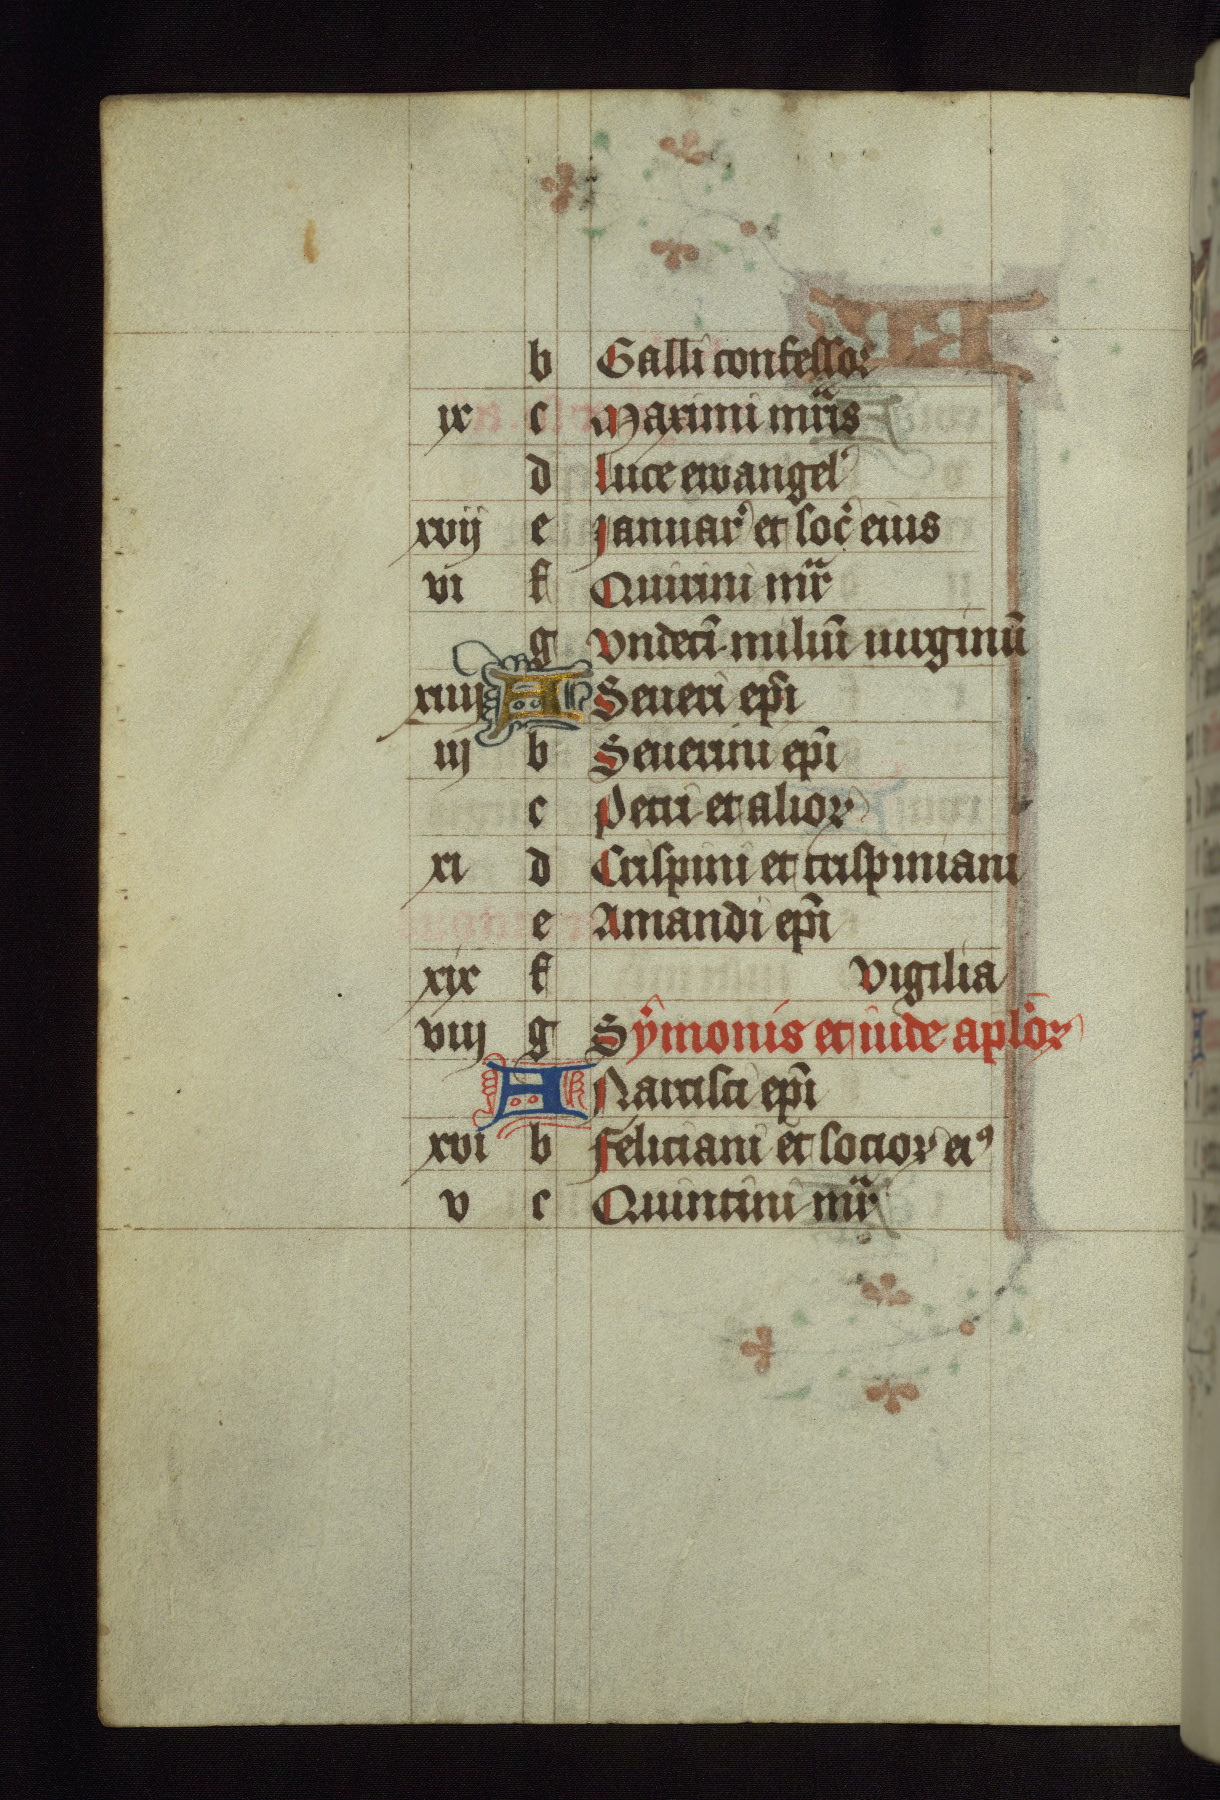 b Galli confessor
ix c Maximi mr̃is
d Luce ewangel'
xvij e Januar' et soc̾ eius
vi f Quirini mr̃
g Vndeci᷑ miliu᷑ uirginu᷑
xiiij A Seueri ep̃i
iij b Seuerini ep̃i
c Petri et alioꝝ
xi d Crispini et crispiniani
e Amandi ep̃i
xix f Vigilia
viij g Symonis et iude aplõꝝ
A Narcisci ep̃i
xvi b Feliciani et socioꝝ ei⁹
v c Quintini mr̃